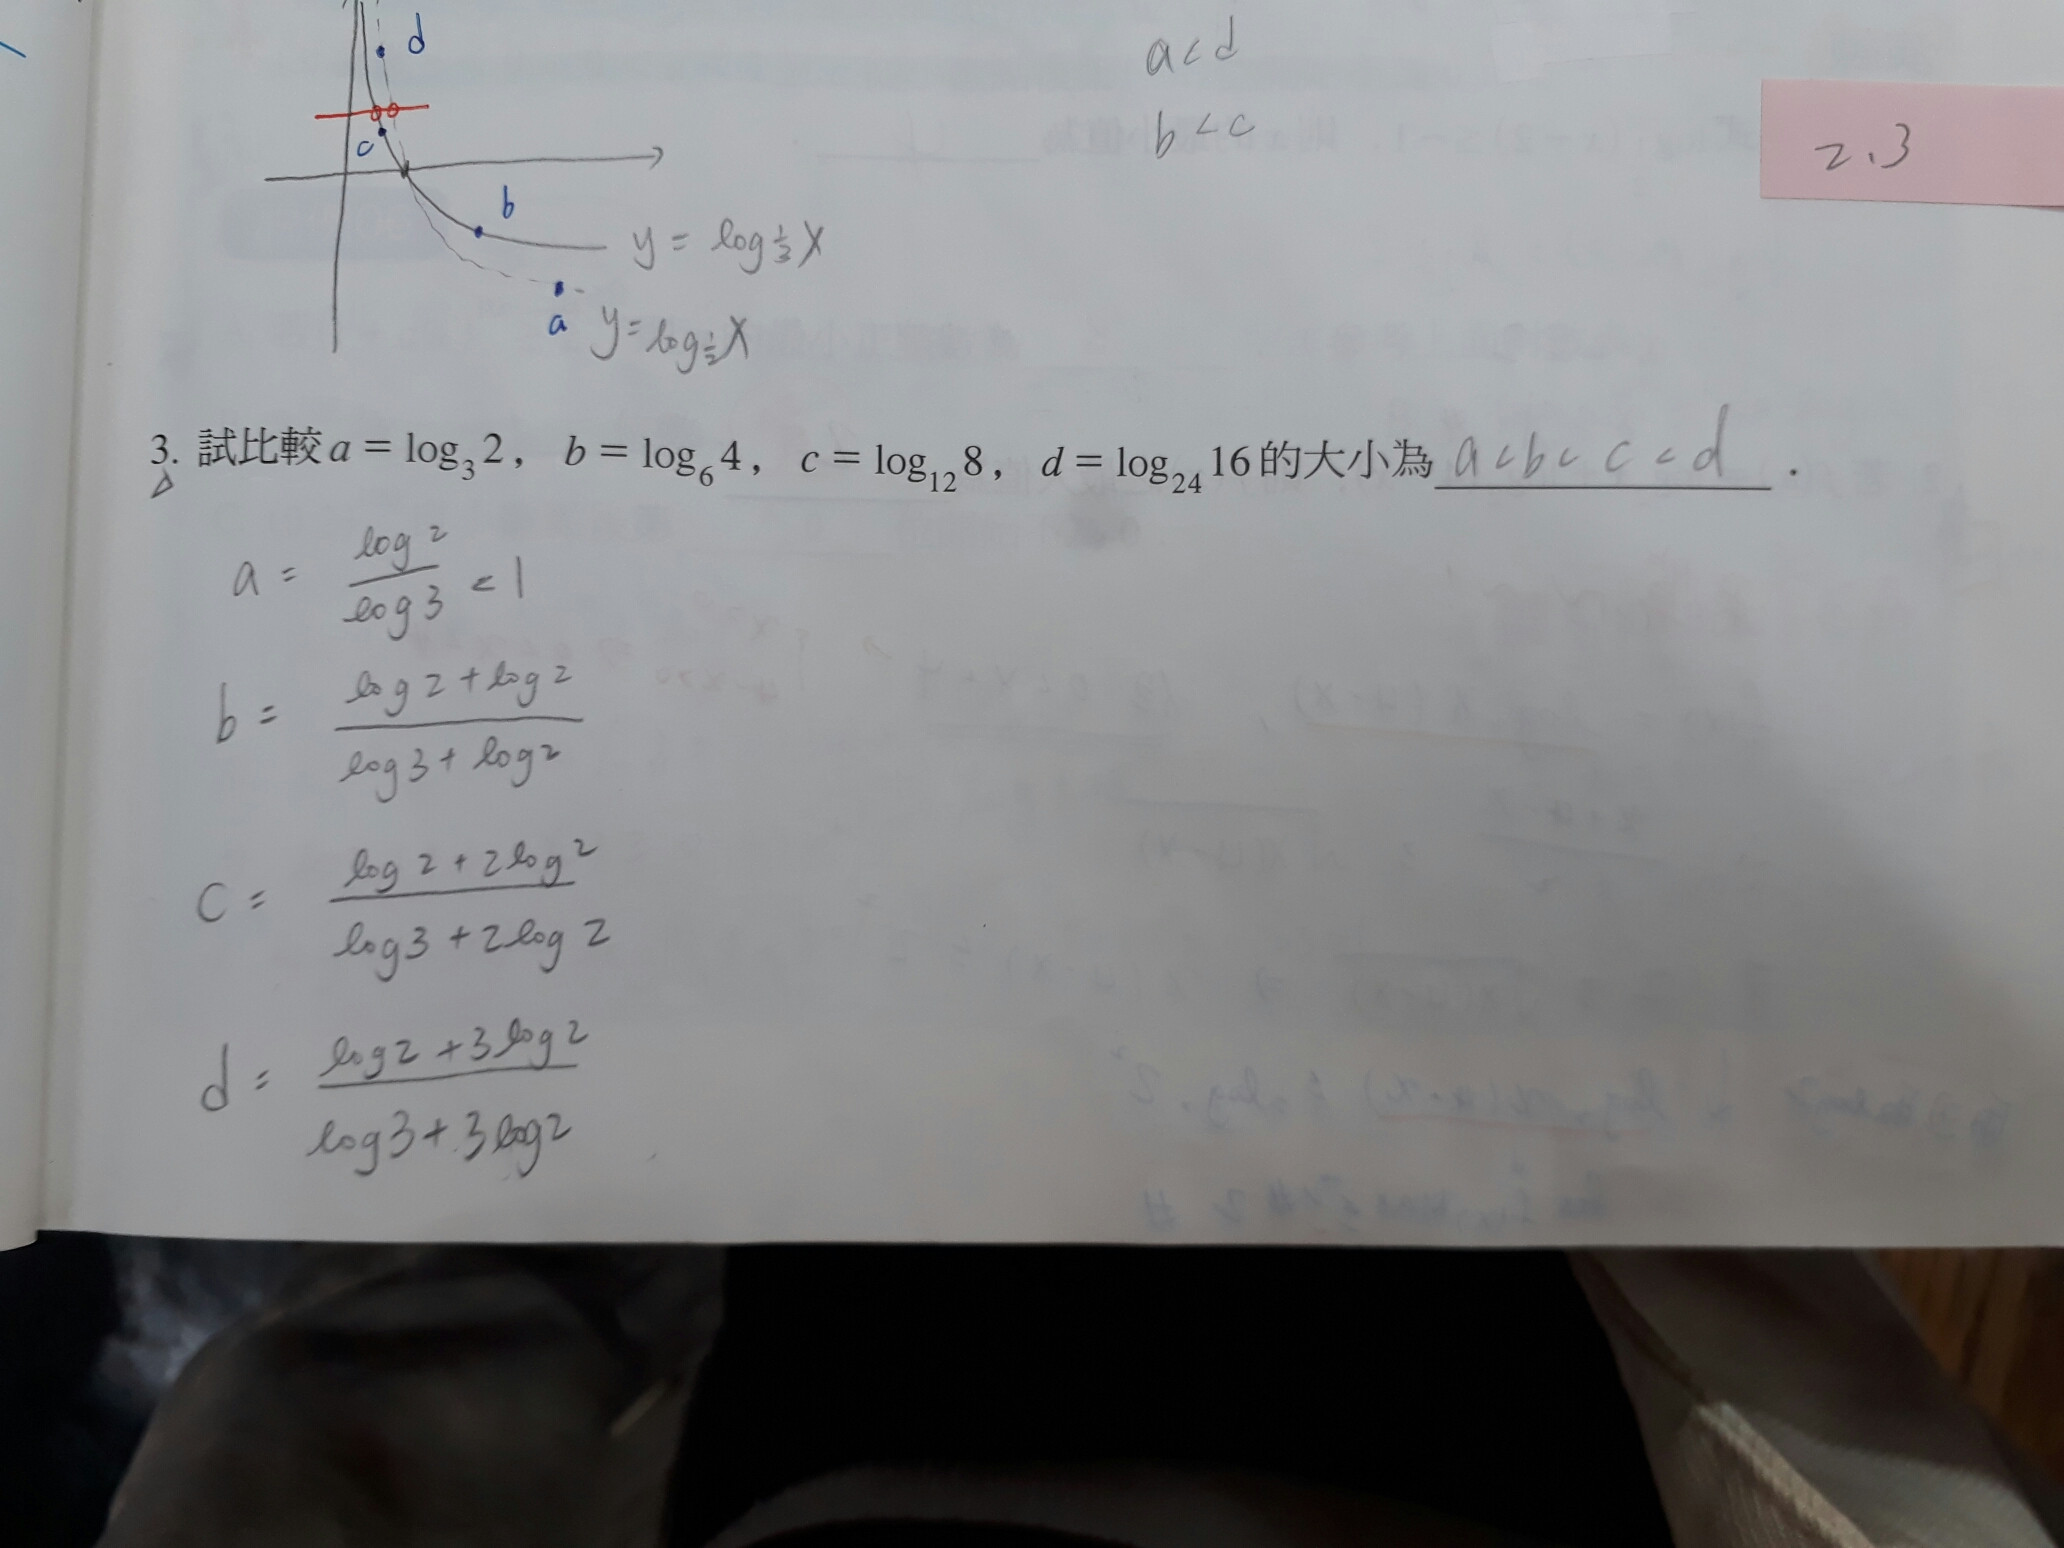 d
a < d
c
b < c
2、3
b
y = log 1/3 X
a
y = log 1/2 X
3. 試比較 a = log₃ 2， b = log₆ 4， c = log₁₂ 8， d = log₂₄ 16 的大小為 a < b < c < d ．
△
a = log 2 / log 3 < 1
b = log 2 + log 2 / log 3 + log 2
c = log 2 + 2 log 2 / log 3 + 2 log 2
d = log 2 + 3 log 2 / log 3 + 3 log 2